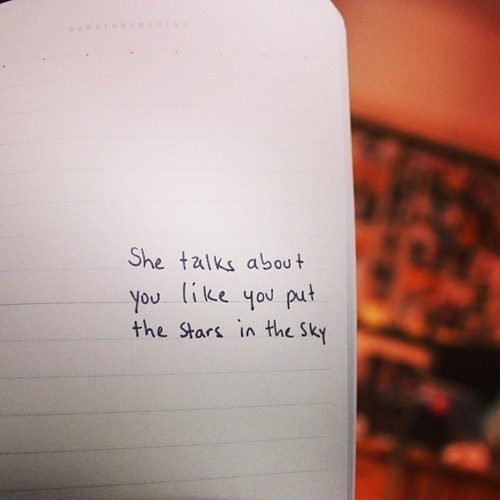 She talks about
you like you put
the stars in the sky